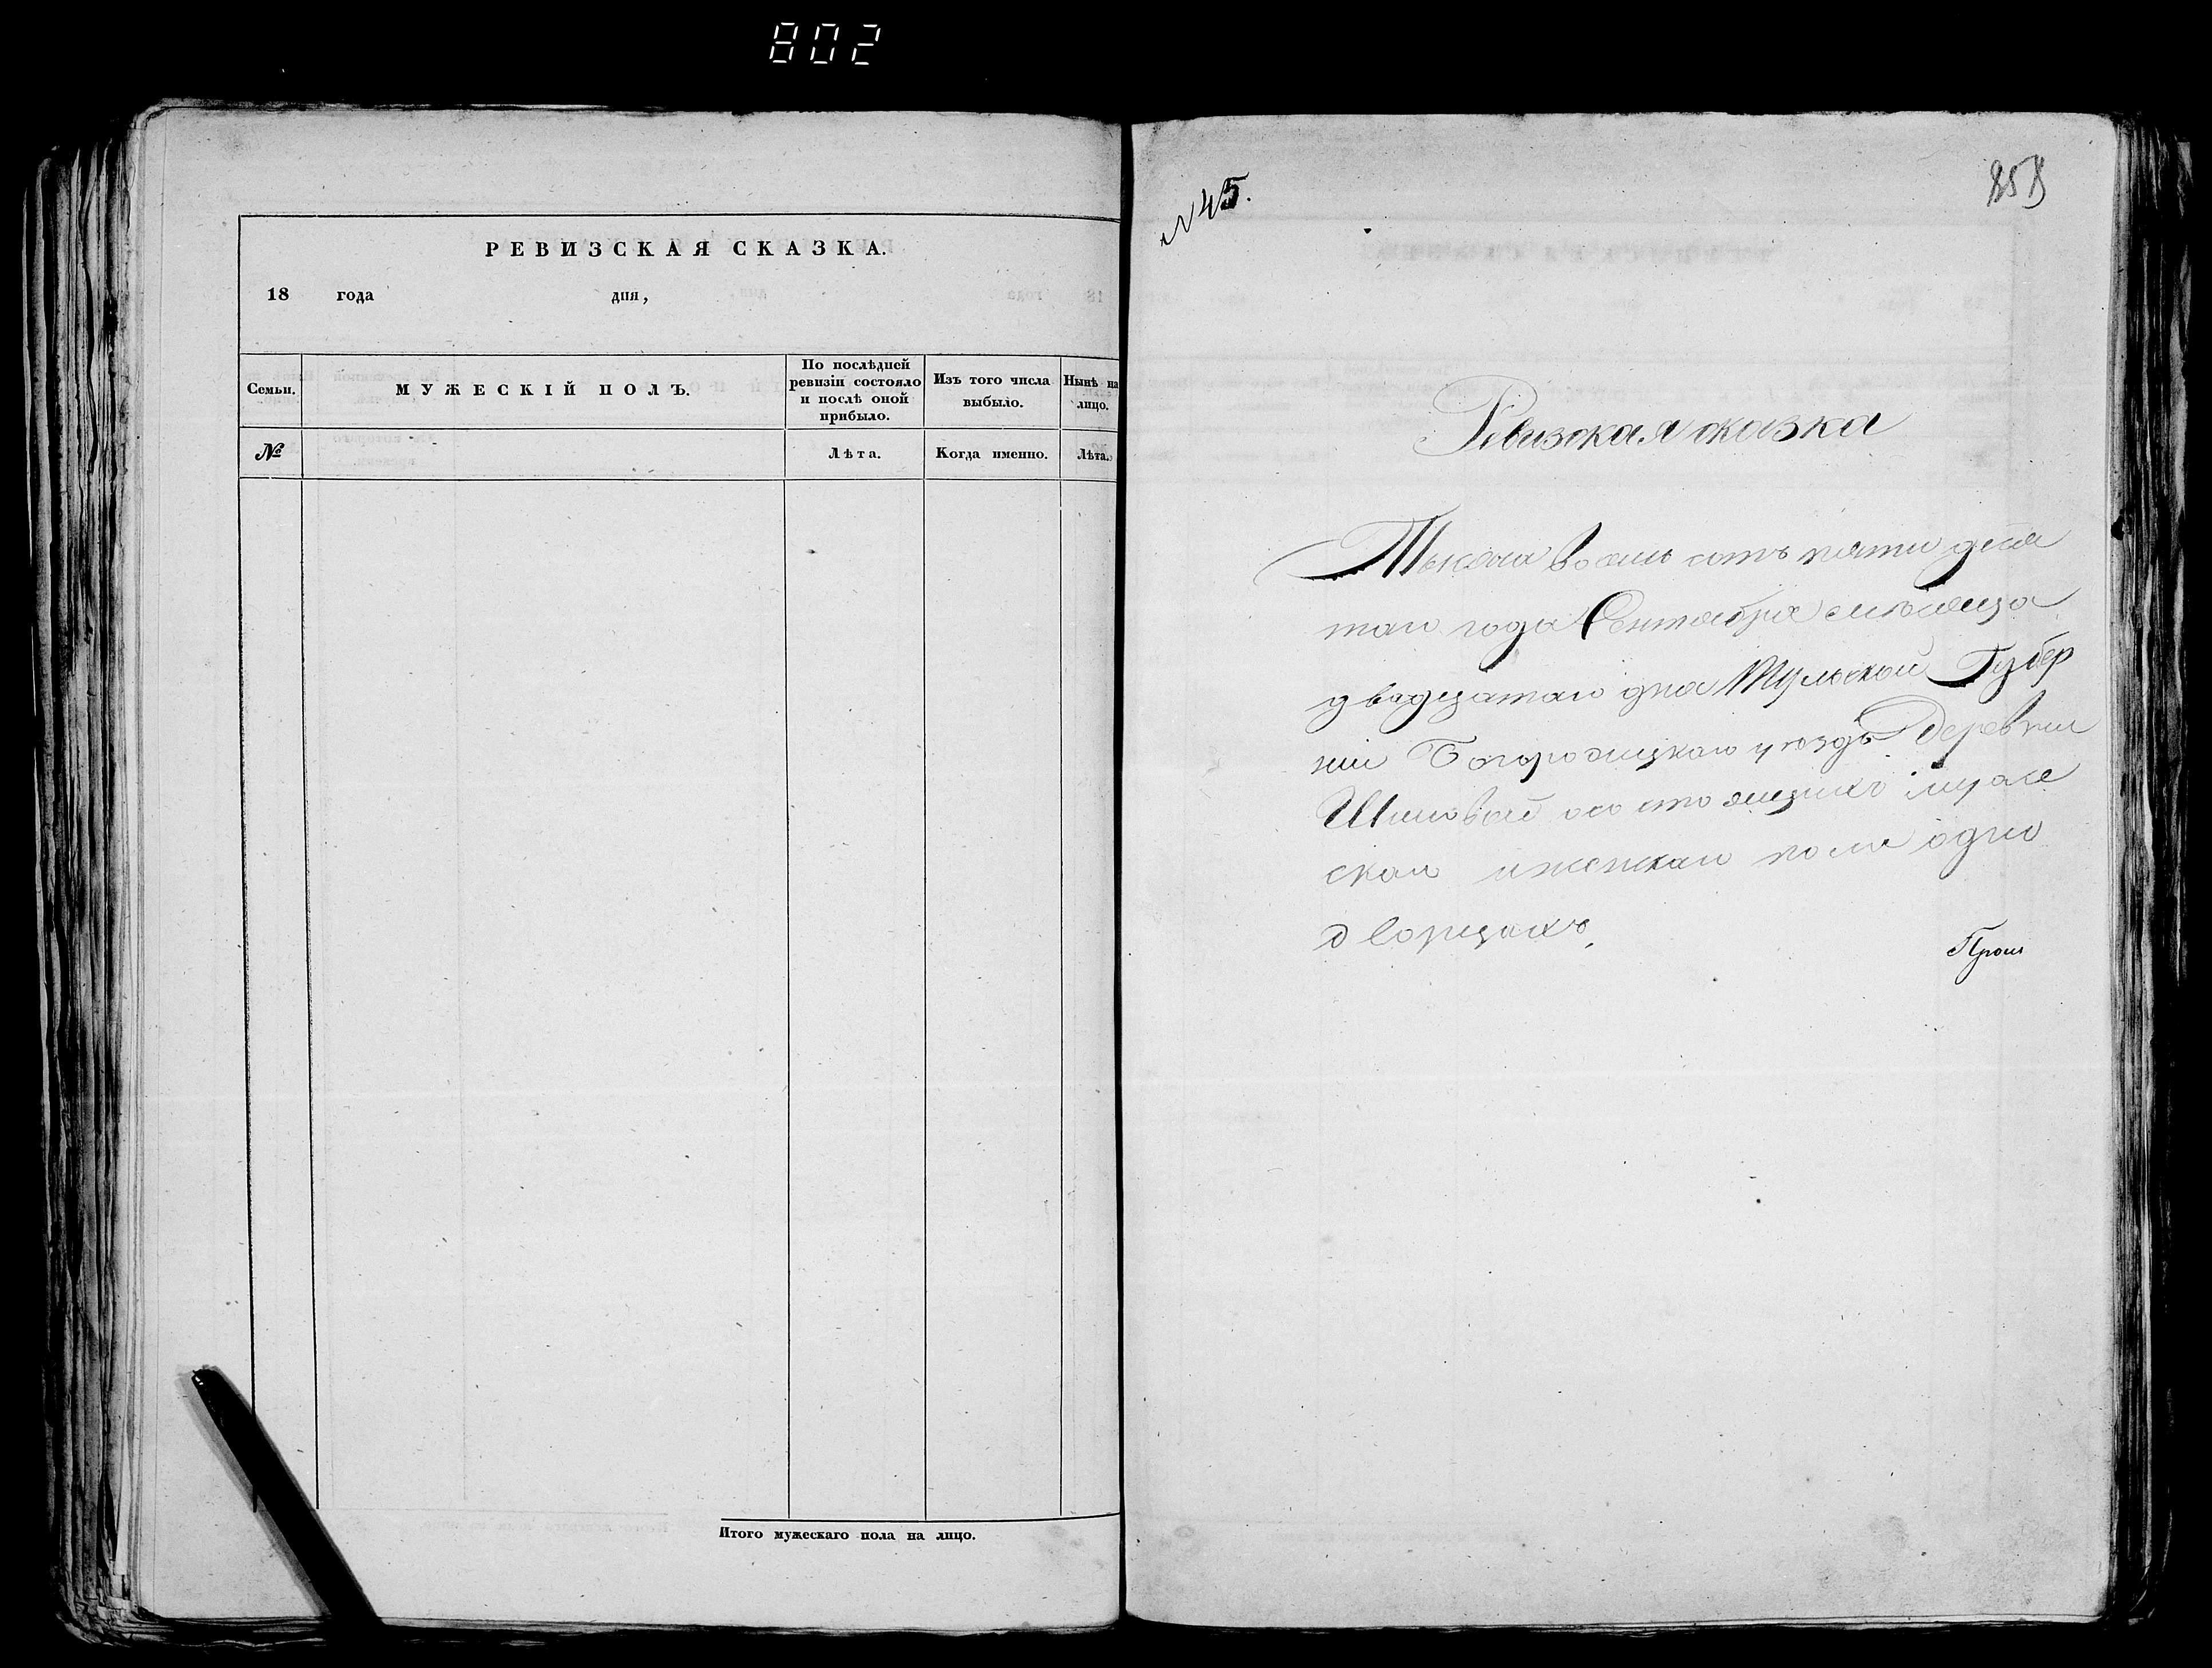 802
РЕВИЗСКАЯ СКАЗКА.
18 года дня,
Семьи.
МУЖЕСКІЙ ПОЛЪ.
По послѣдней
ревизіи состояло
и послѣ оной
прибыло.
Изъ того числа
выбыло.
Нынѣ на
лицо.
№
Лѣта.
Когда именно.
Лѣта.
Итого мужескаго пола на лицо.
№ 45.
Ревизская сказка
Тысеча восемь сотъ пяти деся
таго года Сентября мѣсяца
двадцатаго дня Тульской Губер
ніи Богородицкаго уѣзда Деревни
состоящихъ муже
скаго и женскаго пола одно
дворцахъ